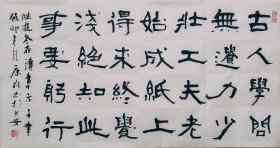 古人學問
無遺力少
壯工夫老
始成紙上
得来終覺
淺絕知此
事要躬行
陸遊冬夜讀書示子聿